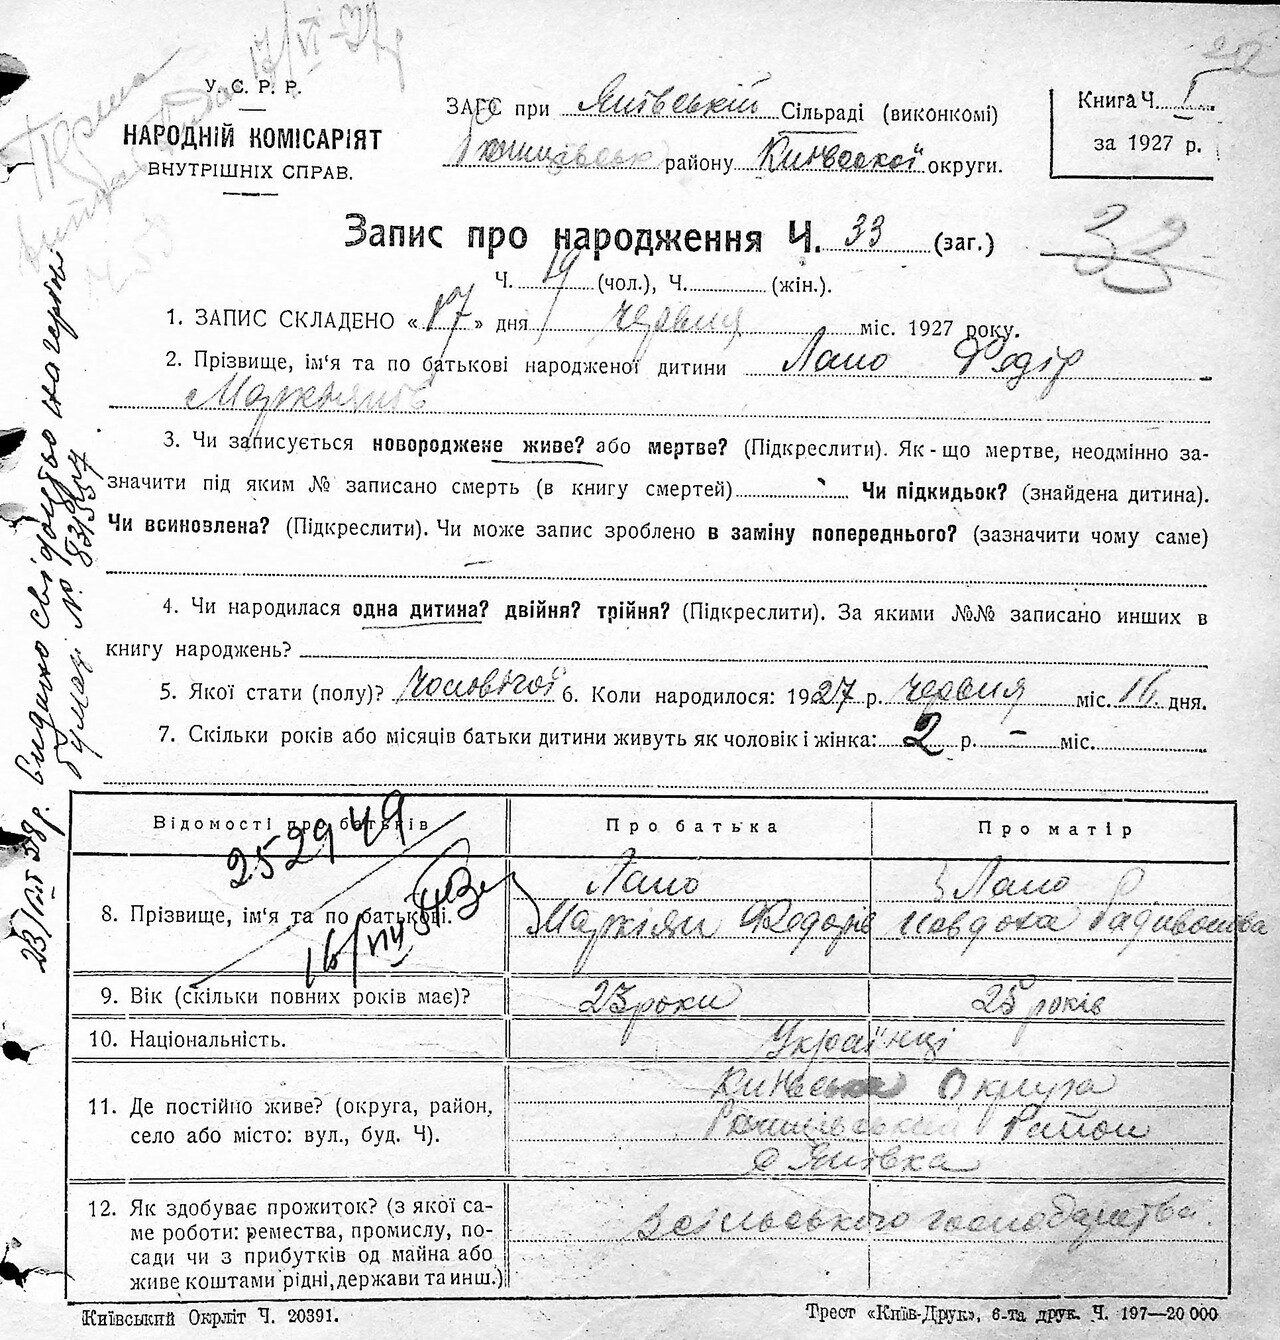 У. С. Р. Р.
НАРОДНІЙ КОМІСАРІЯТ
ВНУТРІШНІХ СПРАВ.
ЗАГС при Ятвеській Сільраді (виконкомі)
району Київської округи.
Книга Ч. I
за 1927 р.
Запис про народження Ч. 33 (заг.)
33
Ч. 19 (чол.), Ч. (жін.).
1. ЗАПИС СКЛАДЕНО « 17 » дня червня міс. 1927 року.
2. Прізвище, ім'я та по батькові народженої дитини Лапо Федір
Маркіянів
3. Чи записується новороджене живе? або мертве? (Підкреслити). Як-що мертве, неодмінно за-
значити під яким № записано смерть (в книгу смертей) Чи підкидьок? (знайдена дитина).
Чи всиновлена? (Підкреслити). Чи може запис зроблено в заміну попереднього? (зазначити чому саме)
—
4. Чи народилася одна дитина? двійня? трійня? (Підкреслити). За якими №№ записано инших в
книгу народжень?
5. Якої стати (полу)? Чоловічої 6. Коли народилося: 1927 р. червня міс. 16 дня.
7. Скільки років або місяців батьки дитини живуть як чоловік і жінка: 2 р. – міс.
Відомості про батьків
Про батька
Про матір
252949
8. Прізвище, ім'я та по батькові.
Лапо
Маркіян Федорів
Лапо
Явдоха Радивонова
9. Вік (скільки повних років має)?
23 роки
25 років
10. Національність.
Українці
11. Де постійно живе? (округа, район, село або місто: вул., буд. Ч).
Київська Округа
Район
12. Як здобуває прожиток? (з якої са-
ме роботи: ремества, промислу, по-
сади чи з прибутків од майна або
живе коштами рідні, держави та инш.)
З сільського господарства.
23/VII 38 р. Видано свідоцтво на герб.
бумазі №
Київський Окрліт Ч. 20391.
Трест «Київ-Друк», 6-та друк. Ч. 197—20 000